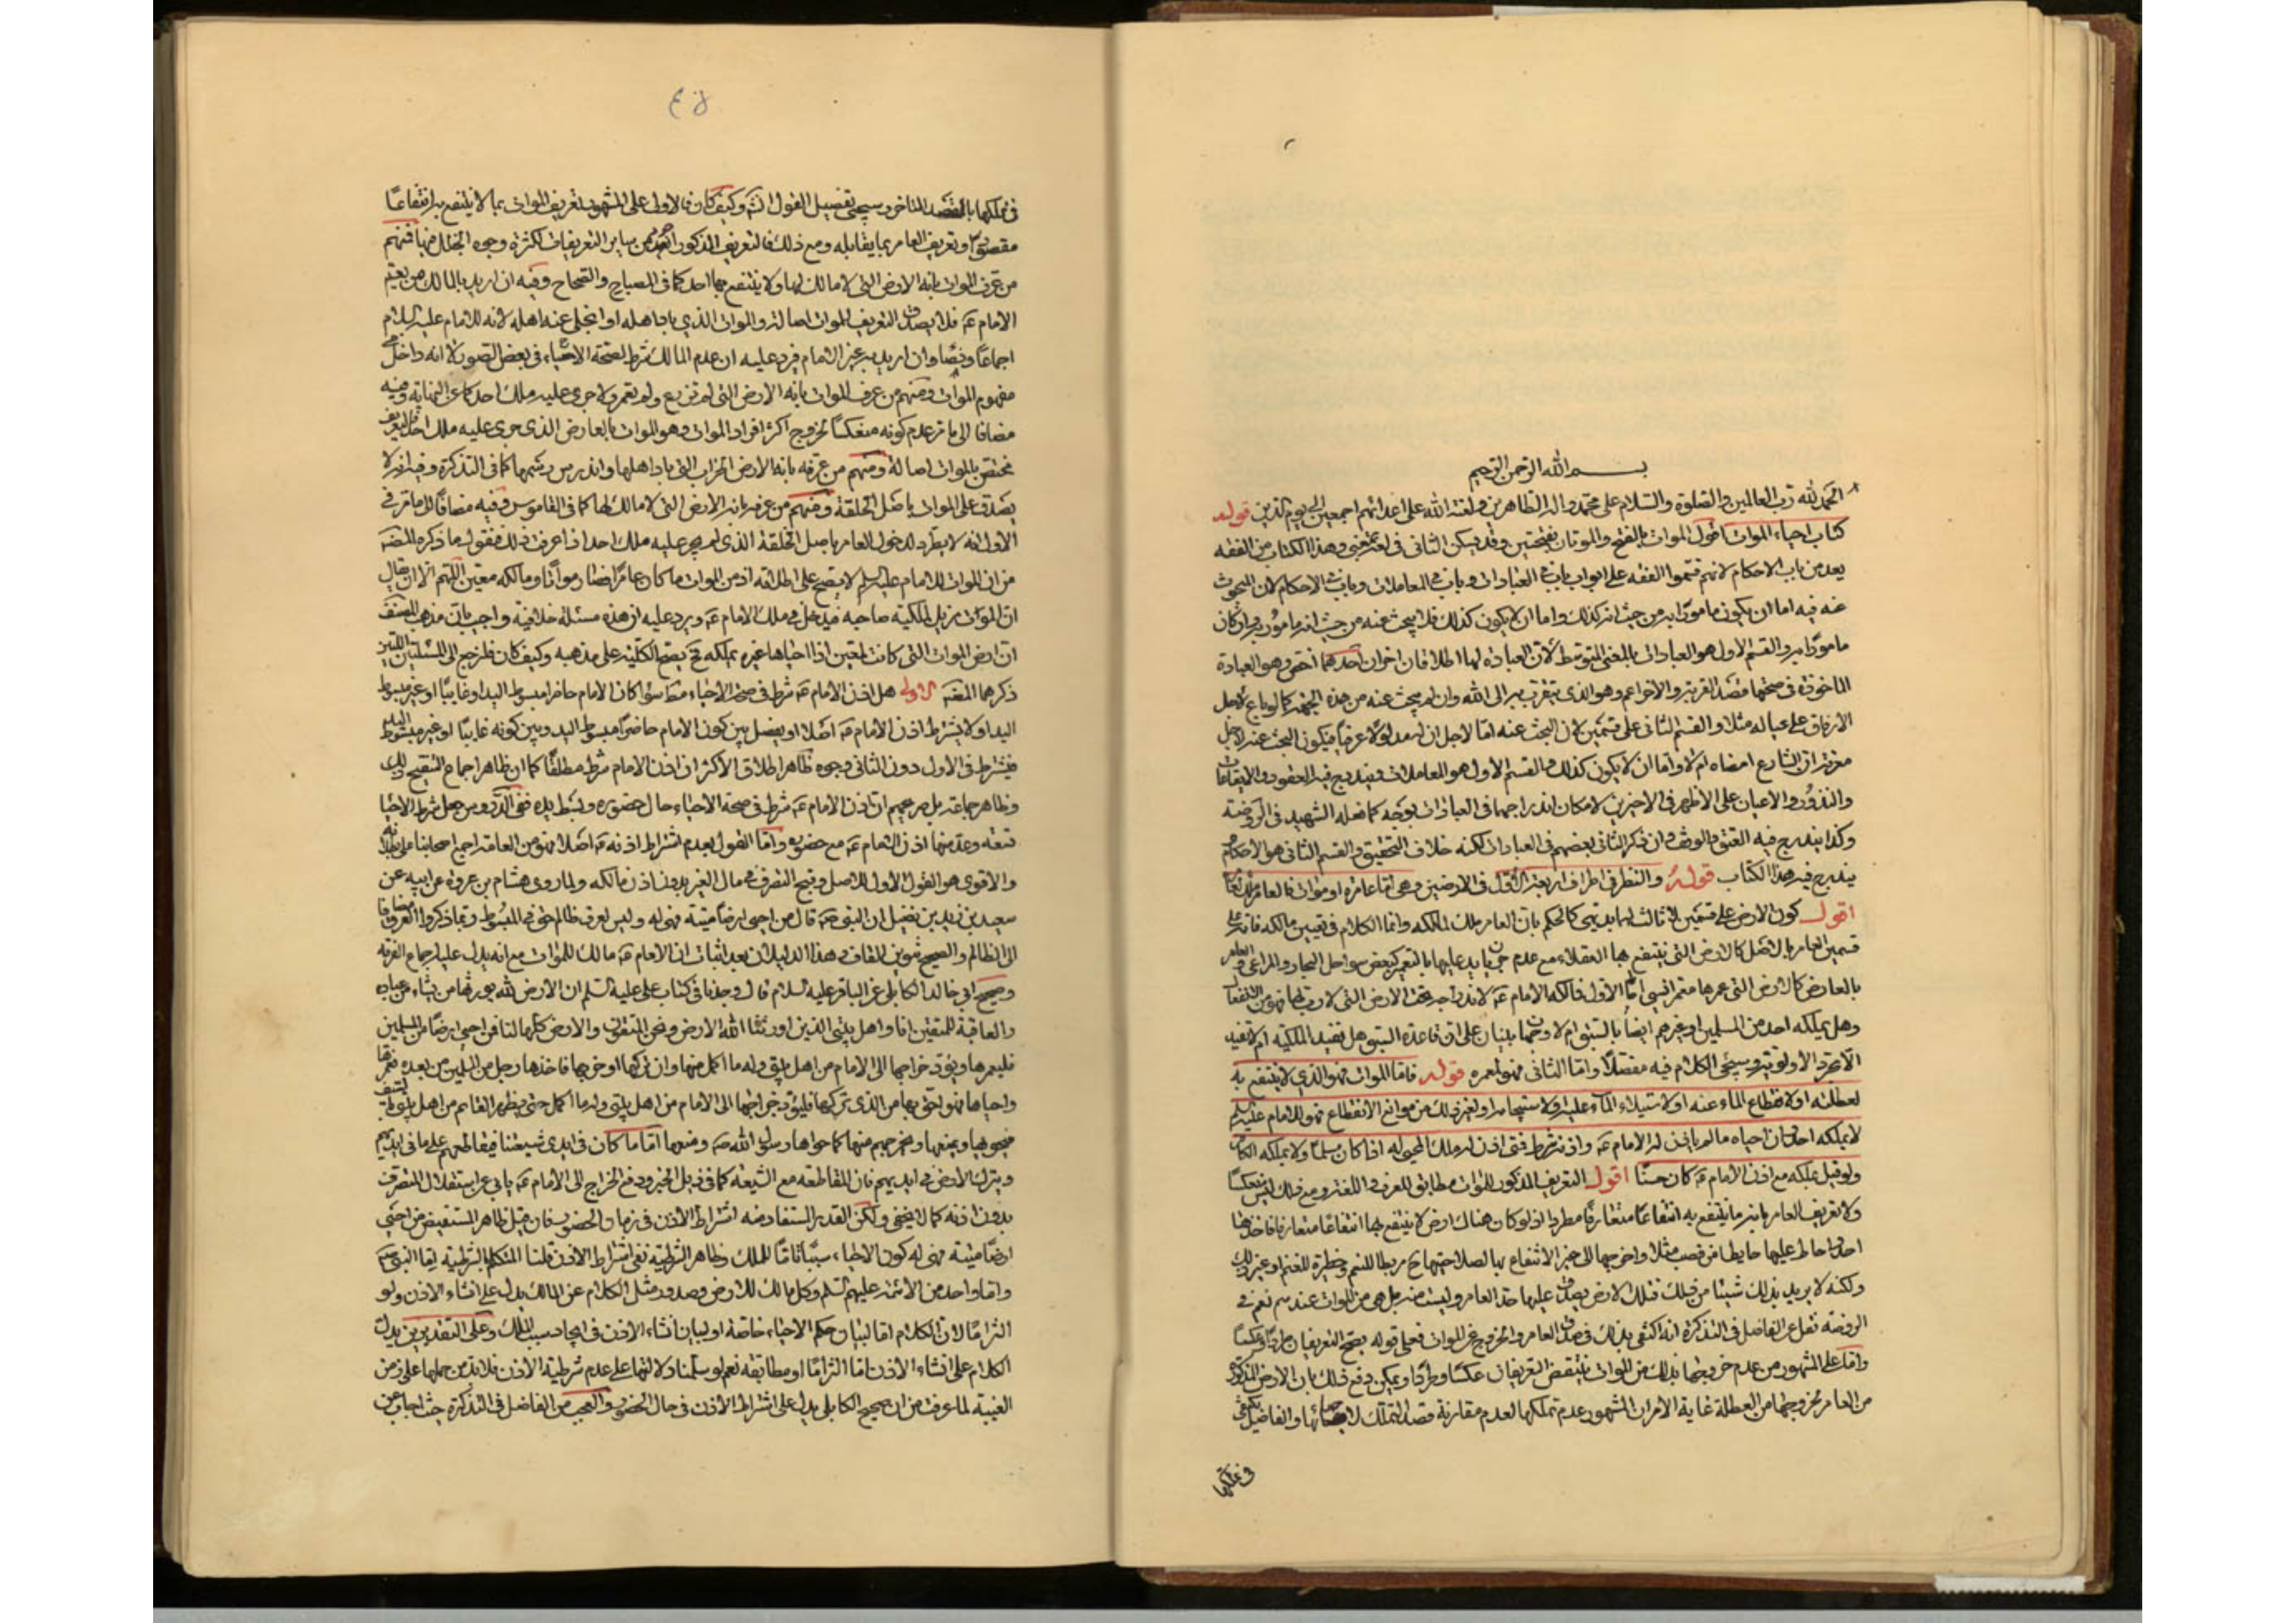 بسم الله الرحمن الرحيم
الحمد لله رب العالمين والصلوة والسلام على محمد واله الطاهرين ولعنة الله على اعدائهم اجمعين الى يوم الدين قوله
كتاب احياء الموات اقول الموات بالفتح والموتان بفتحتين وقد يسكن الثانى فى لغة بمعنى وهذا الكتاب من الفقه
يعد من باب الاحكام لانهم قسموا الفقه على ابواب باب فى العبادات وباب فى المعاملات وباب فى الاحكام لان المبحوث
عنه فيه اما ان يكون مامورا به من حيث انه كذلك واما ان لا يكون كذلك فلا يبحث عنه من حيث انه مامور به وان كان
مامورا به والقسم الاول هو العبادات بالمعنى المتوسط لان العبادة لها اطلاقان اخران احدهما اخص وهو العبادة
الماخوذة فى صحتها قصد القربة والاخر اعم وهو الذى يتقرب به الى الله وان لم يبحث عنه من هذه الجهة كما لو باع لاجل
الانفاق على عياله مثلا والقسم الثانى على قسمين لان البحث عنه اما لاجل ان له مدلولا عرفيا فيكون البحث عنه لاجل
معرفة ان الشارع امضاه ام لا واما ان لا يكون كذلك والقسم الاول هو المعاملات ويندرج فيه العقود والايقاعات
والنذور والايمان على الاظهر فى الاخيرين لامكان اندراجهما فى العبادات بوجه كما فعله الشهيد فى الروضة
وكذا يندرج فيه العتق والوقف وان ذكر الثانى بعضهم فى العبادات لكنه خلاف التحقيق والقسم الثانى هو الاحكام
يندرج فيه هذا الكتاب قوله والنظر فى اطراف اربعة الاول فى الارضين وهى اما عامرة او موات فالعامر
اقول كون الارض على قسمين لا ثالث لهما بديهى كالحكم بان العامر ملك لمالكه وانما الكلام فى تعيين مالكه فانه على
قسمين العامر بالاصل كالارض التى ينتفع بها العقلاء مع عدم بالتعمير كبعض سواحل البحار والمراعى والعامر
بالعارض كالارض التى عمرها معمر انسى اما الاول فمالكه الامام ع لاندراجه تحت الارض التى لا رب لها
وهل يملكه احد من المسلمين او غيرهم ايضا بالسبق ام لا وجهان مبنيان على ان قاعدة السبق هل تفيد الملكية ام لا تفيد
الا مجرد الاولوية وسيجئ الكلام فيه مفصلا واما الثانى فهو لمعمره قوله فاما الموات فهو الذى لا ينتفع به
لعطلته او لانقطاع الماء عنه او لاستيلاء الماء عليه او لاستيجامه او لغير ذلك من موانع الانتفاع فهو للامام عليه السلام
لا يملكه احد وان احياه ما لم ياذن له الامام ع واذنه شرط فمتى اذن له ملك المحيى له اذا كان مسلما ولا يملكه الكافر
ولو قيل يملكه مع اذن الامام ع كان حسنا اقول التعريف المذكور للموات مطابق للعرف واللغة ومع ذلك ليس منعكسا
ولا تعريف العامر بانه ما ينتفع به انتفاعا متعارفا مطردا اذ لو كان هناك ارض لا ينتفع بها انتفاعا متعارفا فاخذها
احد واحاط عليها حايطا من قصب مثلا واخرجها الى حيز الانتفاع بها لصلاحيتها ح مربطا للنعم وحظيرة للغنم او غير ذلك
ولكنه لا يريد بذلك شيئا من فتلك الارض يصدق عليها حد العامر وليست منه بل هى من الموات عندهم نعم فى
الروضة نقل عن الفاضل فى التذكرة انه اكتفى بذلك فى صدق العامر والخروج عن الموات فعلى قوله يصح التعريفان طردا وعكسا
واما على المشهور من عدم خروجها بذلك من الموات فينتقض التعريفان عكسا وطردا ويمكن دفع ذلك بان الارض المذكورة
من العامر لخروجها من العطلة غاية الامر ان المشهور عدم تملكها لعدم مقارنة قصد التملك لاحيائها والفاضل يكتفى
فى تملكها
٤٥
فى تملكها بالقصد المتاخر وسيجئ تفصيل القول انش وكيف كان فالاولى على المشهور تعريف الموات بما لا ينتفع به انتفاعا
مقصودا وتعريف العامر بما يقابله ومع ذلك فالتعريف المذكور من ساير التعريفات لكثرة وجوه الخلل فيها فمنهم
من عرف الموات بانه الارض التى لا مالك لها ولا ينتفع بها احد كما فى المصباح والصحاح وفيه ان اريد بالمالك من يعم
الامام ع فلا يصدق التعريف للموات اصالة والموات الذى باد اهله او انجلى عنه اهله لانه للامام عليه السلام
اجماعا ونصا وان اريد به غير الامام فيرد عليه ان عدم المالك شرط لصحة الاحياء فى بعض الصور لا انه داخل فى
مفهوم الموات ومنهم من عرف الموات بانه الارض التى لم تزرع ولم تعمر ولا جرى عليه ملك احد كما عن النهاية وفيه
مضافا الى ما مر عدم كونه منعكسا لخروج اكثر افراد الموات وهو الموات بالعارض الذى جرى عليه ملك احد فالتعريف
مختص بالموات اصالة ومنهم من عرفه بانه الارض الخراب التى باد اهلها واندرس رسمها كما فى التذكرة وفيه انه لا
يصدق على الموات باصل الخلقة ومنهم من عرفه بانه الارض التى لا مالك لها كما فى القاموس وفيه مضافا الى ما مر فى
الاول انه لا يطرد لدخول العامر باصل الخلقة الذى لم يجر عليه ملك احد اذا عرفت ذلك فنقول ما ذكره المصنف
من ان الموات للامام عليه السلم لا يصح على اطلاقه اذ من الموات ما كان عامرا فصار مواتا ومالكه معين اللهم الا ان يقال
ان الموات يزيل لملكية صاحبه فيدخل فى ملك الامام ع ويرد عليه ان هذه مسئلة خلافية واجيب بان مذهب المصنف
ان ارض الموات التى كانت لمعين اذا احياها غيره يملكه فح يصح الكلية على مذهبه وكيف كان فلنرجع الى المسئلتين اللتين
ذكرهما المصنف الاولى هل اذن الامام ع شرط فى صحة الاحياء مط سواء كان الامام حاضرا مبسوط اليد او غايبا او غير مبسوط
اليد او لا يشترط اذن الامام ع اصلا او يفصل بين كون الامام حاضرا مبسوط اليد وبين كونه غايبا او غير مبسوط اليد
فيشترط فى الاول دون الثانى وجوه ظاهر اطلاق الاكثر ان اذن الامام شرط مطلقا كما ان ظاهر اجماع التنقيح ذلك
وظاهر جماعة بل صريحهم ان اذن الامام ع شرط فى صحة الاحياء حال حضوره وبسط يده ففى الدروس جعل شرط الاحياء
تسعة وعد منها اذن الامام ع مع حضوره واما القول بعدم اشتراط اذنه ع اصلا فهو من العامة اجمع اصحابنا على
والاقوى هو القول الاول للاصل وقبح التصرف فى مال الغير بدون اذن مالكه ولما روى هشام بن عروة عن ابيه عن
سعيد بن زيد بن نفيل ان النبى ص قال من احيى ارضا ميتة فهى له وليس لعرق ظالم حق فى المبسوط وانما ذكروا العرق مضافا
الى الظالم والصحيح تنوين القاف وهذا الدليلان بعد اثبات ان الامام ع مالك للموات مع انه يدل عليه اجماع الفرقة
وصحيح ابى خالد الكابلى عن الباقر عليه السلام قال وجدنا فى كتاب على عليه السلم ان الارض لله يورثها من يشاء من عباده
والعاقبة للمتقين انا واهل بيتى الذين اورثنا الله الارض ونحن المتقون والارض كلها لنا فمن احيى ارضا من المسلمين
فليعمرها ويؤد خراجها الى الامام من اهل بيتى وله ما اكل منها وان تركها او خربها فاخذها رجل من المسلمين من بعده فعمرها
واحياها فهو احق بها من الذى تركها فليؤد خراجها الى الامام من اهل بيتى وله ما اكل حتى يظهر القائم من اهل بيتى بالسيف
فيحويها ويمنعها ويخرجهم منها كما حواها رسول الله ص ومنعها الا ما كان فى ايدى شيعتنا فيقاطعهم على ما فى ايديهم
ويترك الارض فى ايديهم فان المقاطعة مع الشيعة كما فى ذيل الخبر ودفع الخراج الى الامام ع يابى عن استقلال التصرف
بدون اذنه كما لا يخفى ولكن القدر المستفاد منه اشتراط الاذن فى زمان الحضور فان قيل ظاهر المستفيض من احيى
ارضا ميتة فهى له كون الاحياء سببا تاما للملك وظاهر الشرطية نفى اشتراط الاذن قلنا المتكلم بالشرطية اما النبى ص
واما واحد من الائمة عليهم السلم وكل مالك للارض وصدور مثل الكلام عن المالك يدل على انشاء الاذن ولو
التزاما لان الكلام اما لبيان حكم الاحياء خاصة او لبيان انشاء الاذن فى ايجاد سبب الملك وعلى التقديرين يدل
الكلام على انشاء الاذن اما التزاما او مطابقة نعم لو سلمنا دلالتها على عدم شرطية الاذن فلا بد من حملها على زمن
الغيبة لما عرفت من ان صحيح الكابلى يدل على اشتراط الاذن فى حال الحضور والعجب من الفاضل فى التذكرة حيث اجاب عن